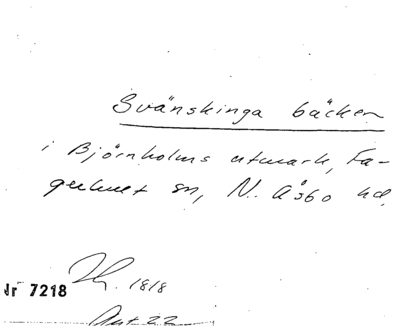 Svänskinga bäcken
i Björnholms utmark, Fa-
gerhult sn, N. Åsbo hd,
Nr 7218
1818